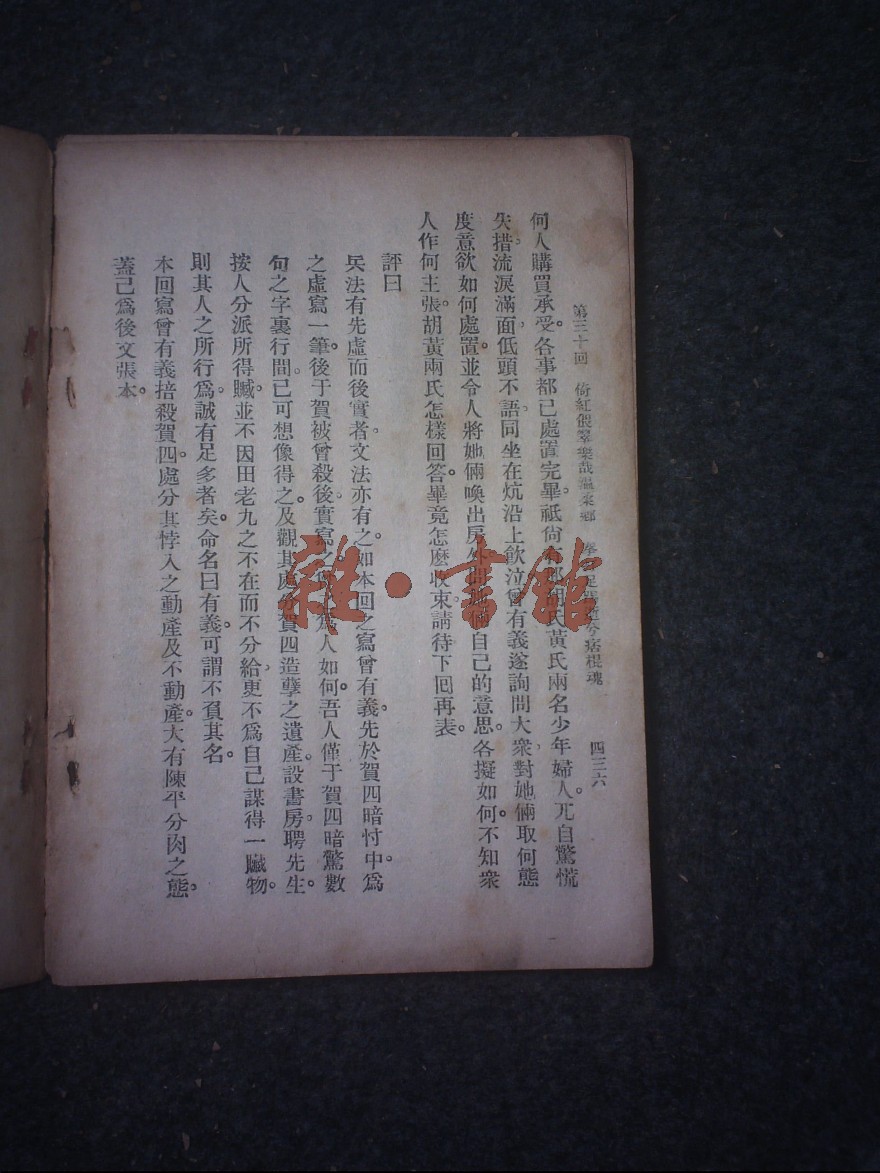 第三十回　倚紅偎翠樂哉溫柔鄉　足　今痞棍魂　四三六
何人購買承受。各事都已處置完畢。祇尙有那胡氏黃氏兩名少年婦人。兀自驚慌
失措。流淚滿面。低頭不語。同坐在炕沿上飲泣。曾有義遂詢問大衆。對她倆取何態
度。意欲如何處置。並令人將她倆喚出房外。問她倆自己的意思。各擬如何。不知衆
人作何主張。胡黃兩氏怎樣回答。畢竟怎麽收束。請待下回再表。
評曰
兵法有先虛而後實者。文法亦有之。如本回之寫曾有義。先於賀四暗忖中。爲
之虛寫一筆。後于賀被曾殺後。實寫之。爲人如何。吾人僅于賀四暗驚數
句之字裏行間。已可想像得之。及觀其處分賀四造孽之遺產。設書房。聘先生。
按人分派所得贓。並不因田老九之不在而不分給。更不爲自己謀得一贓物。
則其人之所行爲。誠有足多者矣。命名曰有義。可謂不負其名。
本回寫曾有義掊殺賀四。處分其悖入之動產及不動產。大有陳平分肉之態。
蓋已爲後文張本。
雜·書館